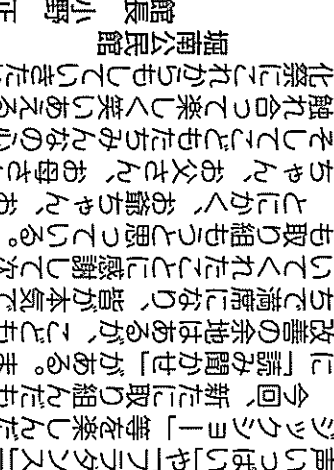 声いっぱい」や「フラダンス」
ジックショー」等を楽しんだ
今回、新たに取り組んだも
に「読み聞かせ」がある。ま
改善の余地はあるが、こども
ちで満席になり、皆が本気で
いてくれたことに感謝して次
も取り組もうと思っている。
とにかく、お爺ちゃん、お
ちゃん、お父さん、お母さ
そしてこどもたちみんなの心
触れ合って楽しく笑いあえる
化祭にこれからもしていきた
堀南公民館
館長 小野 正